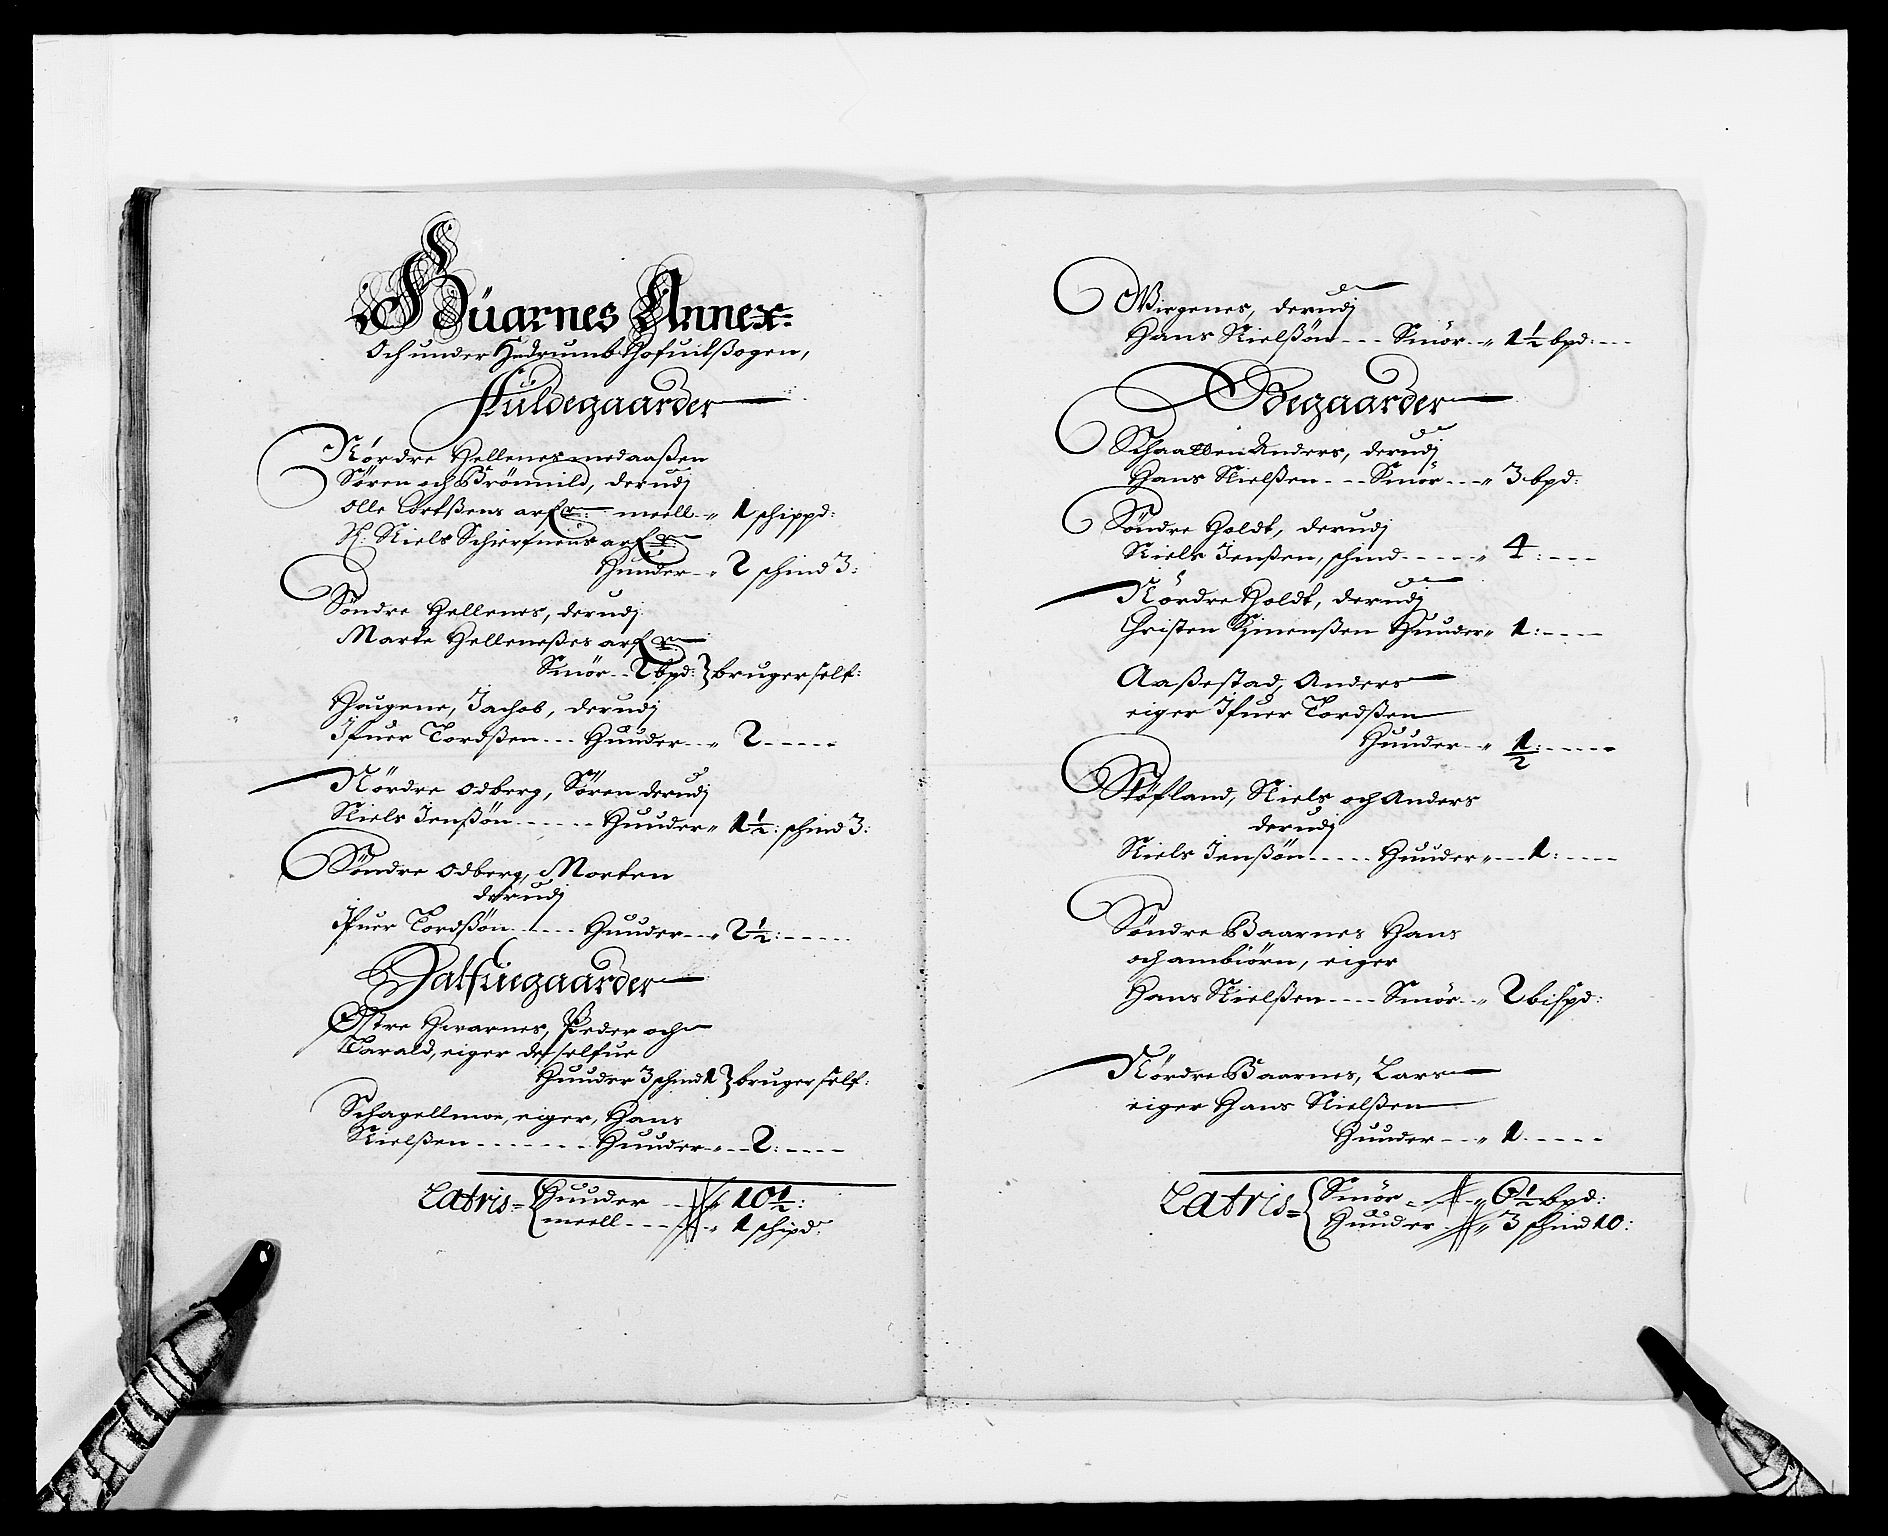 Huarnes Annex
Och under Hedrumb Hofuitßogen,
Fuldegaarder
Nørdre Hellenes medaaßen
Søren och Brönnild, derudj
Olle Cortßens arf meell 1 schippd:
H: Niels Schierfuens arf
Huuder 2 schind 3:
Søndre Hellenes, derudj
Marte Helleneßes arf
Smör 2 bpd: } bruger self:
Haugene, Jachob, derudj
Ifuer Tordßen Huuder 2
Nördre odberg, Søren derudj
Niels Jenßön Huuder 1 1/2: schind 3:
Söndre odberg, Morten
derudj
Ifuer Tordßön Huuder 2 1/2:
Halfuegaarder
Østre Hvarnes, Peder och
Harald, eiger def selfue
Huuder 3 schind 1 } bruger self:
Schagellmoe, eiger, Hans
Nielßen Huuder 2:
Latris = { Huuder 10 1/2:
meell 1 schipd:
Wirgenes, derudj
Hans Nielßön Smör 1 1/2 bpd:
Ödegaarder
Schaatten Anders, derudj
Hans Nielßen Smör 3 bpd:
Söndre Holdt, derudj
Niels Jenßen, schind 4:
Nördre Holdt, derudj
Christen Simenßen Huuder 1:
Aaßestad, Anders
eiger Ifuer Tordßen
Huuder 1/2:
Höfland, Niels och Anders
derudj
Niels Jenßön Huuder 1:
Söndre Baarnes Hans
och ambiörn, eiger
Hans Nielßen Smör 2 bispd:
Nørdre Baarnes, Lars
eiger Hans Nielßen
Huuder 1
Latris = { Smör 6 1/2 bpd:
Huuder 3 schind 10: